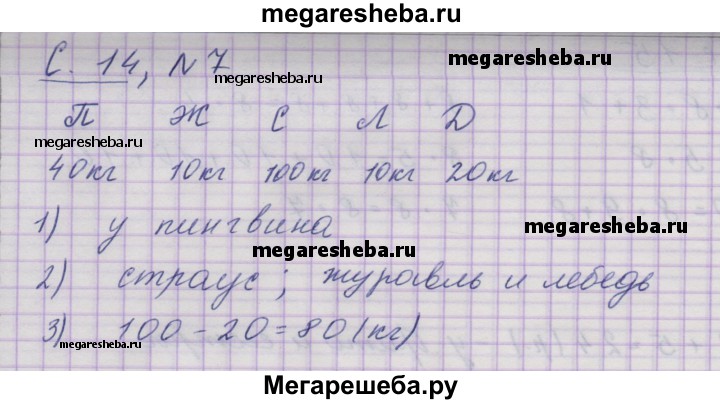 megaresheba.ru
С. 14, N 7
megaresheba.ru
megaresheba.ru
П Ж С Л Д
megaresheba.ru
40кг 10кг 100кг 10кг 20кг
1) у пингвина
megaresheba.ru
megaresheba.ru
2) страус; журавль и лебедь
3) 100 - 20 = 80 (кг)
megaresheba.ru
Мегарешеба.ру